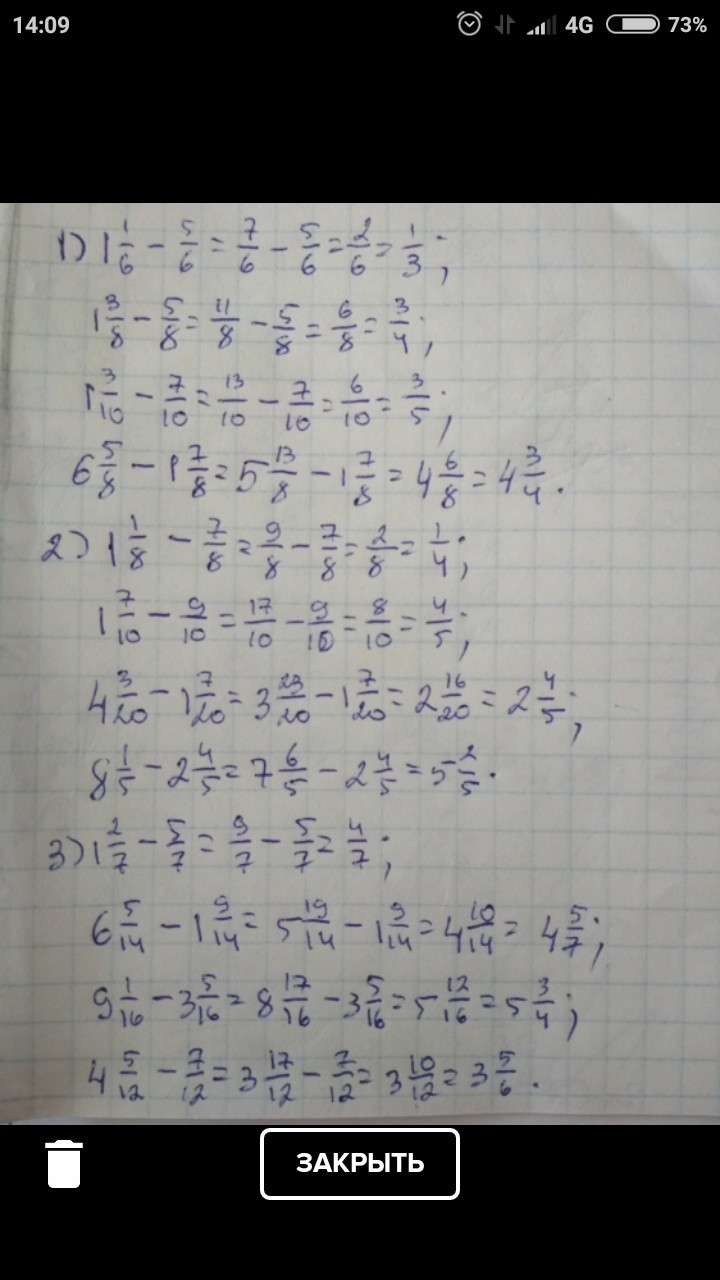 14:09 4G 73%
1) 1 1/6 - 5/6 = 7/6 - 5/6 = 2/6 = 1/3;
1 3/8 - 5/8 = 11/8 - 5/8 = 6/8 = 3/4;
1 3/10 - 7/10 = 13/10 - 7/10 = 6/10 = 3/5;
6 5/8 - 1 7/8 = 5 13/8 - 1 7/8 = 4 6/8 = 4 3/4.
2) 1 1/8 - 7/8 = 9/8 - 7/8 = 2/8 = 1/4;
1 7/10 - 9/10 = 17/10 - 9/10 = 8/10 = 4/5;
4 3/20 - 1 7/20 = 3 23/20 - 1 7/20 = 2 16/20 = 2 4/5;
8 1/5 - 2 4/5 = 7 6/5 - 2 4/5 = 5 2/5.
3) 1 2/7 - 5/7 = 9/7 - 5/7 = 4/7;
6 5/14 - 1 9/14 = 5 19/14 - 1 9/14 = 4 10/14 = 4 5/7;
9 1/16 - 3 5/16 = 8 17/16 - 3 5/16 = 5 12/16 = 5 3/4;
4 5/12 - 7/12 = 3 17/12 - 7/12 = 3 10/12 = 3 5/6.
ЗАКРЫТЬ